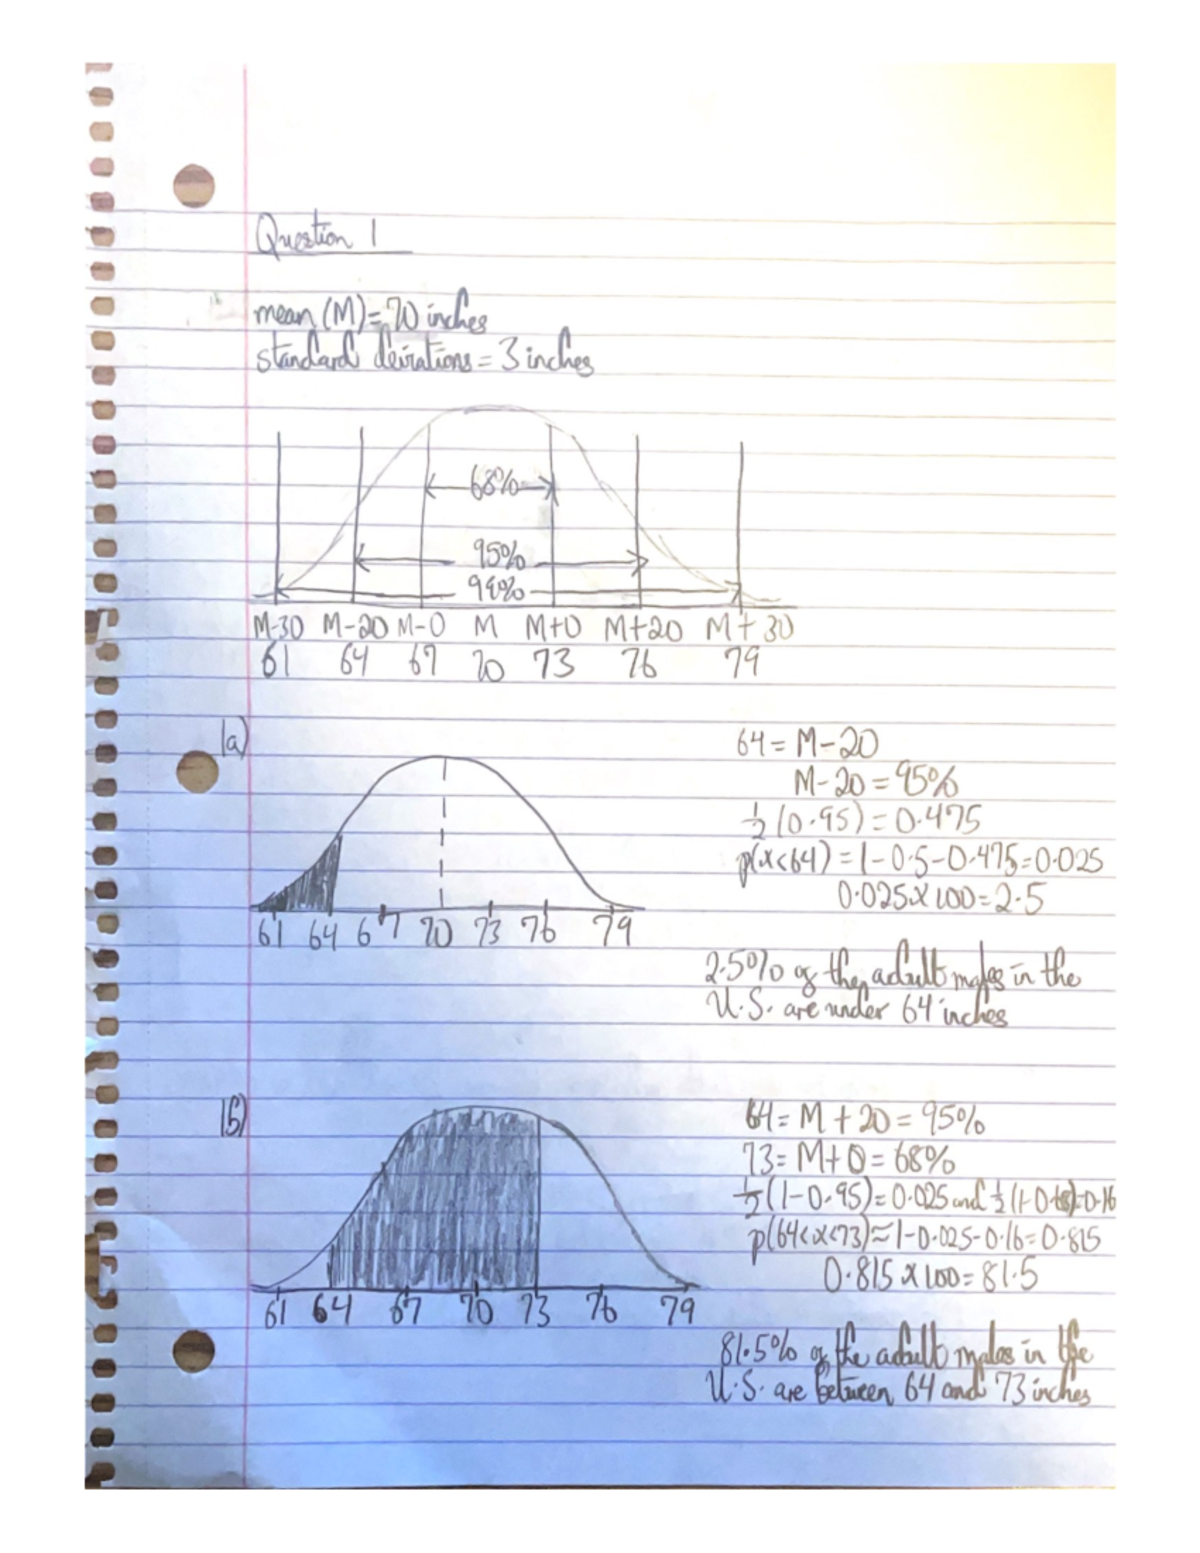 Question 1
mean (M) = 70 inches
standard deviations = 3 inches
68%
95%
99%
M-3σ M-2σ M-σ M M+σ M+2σ M+3σ
61 64 67 70 73 76 79
1a)
64 = M-2σ
M-2σ = 95%
½ (0.95) = 0.475
p(x<64) = 1-0.5-0.475=0.025
0.025 x 100 = 2.5
61 64 67 70 73 76 79
2.5% of the adult males in the
U.S. are under 64 inches
1b)
64 = M + 2σ = 95%
73 = M+σ = 68%
½ (1-0.95) = 0.025 and ½ (1-0.68)=0.16
p(64<x<73) ≈ 1-0.025-0.16=0.815
0.815 x 100 = 81.5
61 64 67 70 73 76 79
81.5% of the adult males in the
U.S. are between 64 and 73 inches